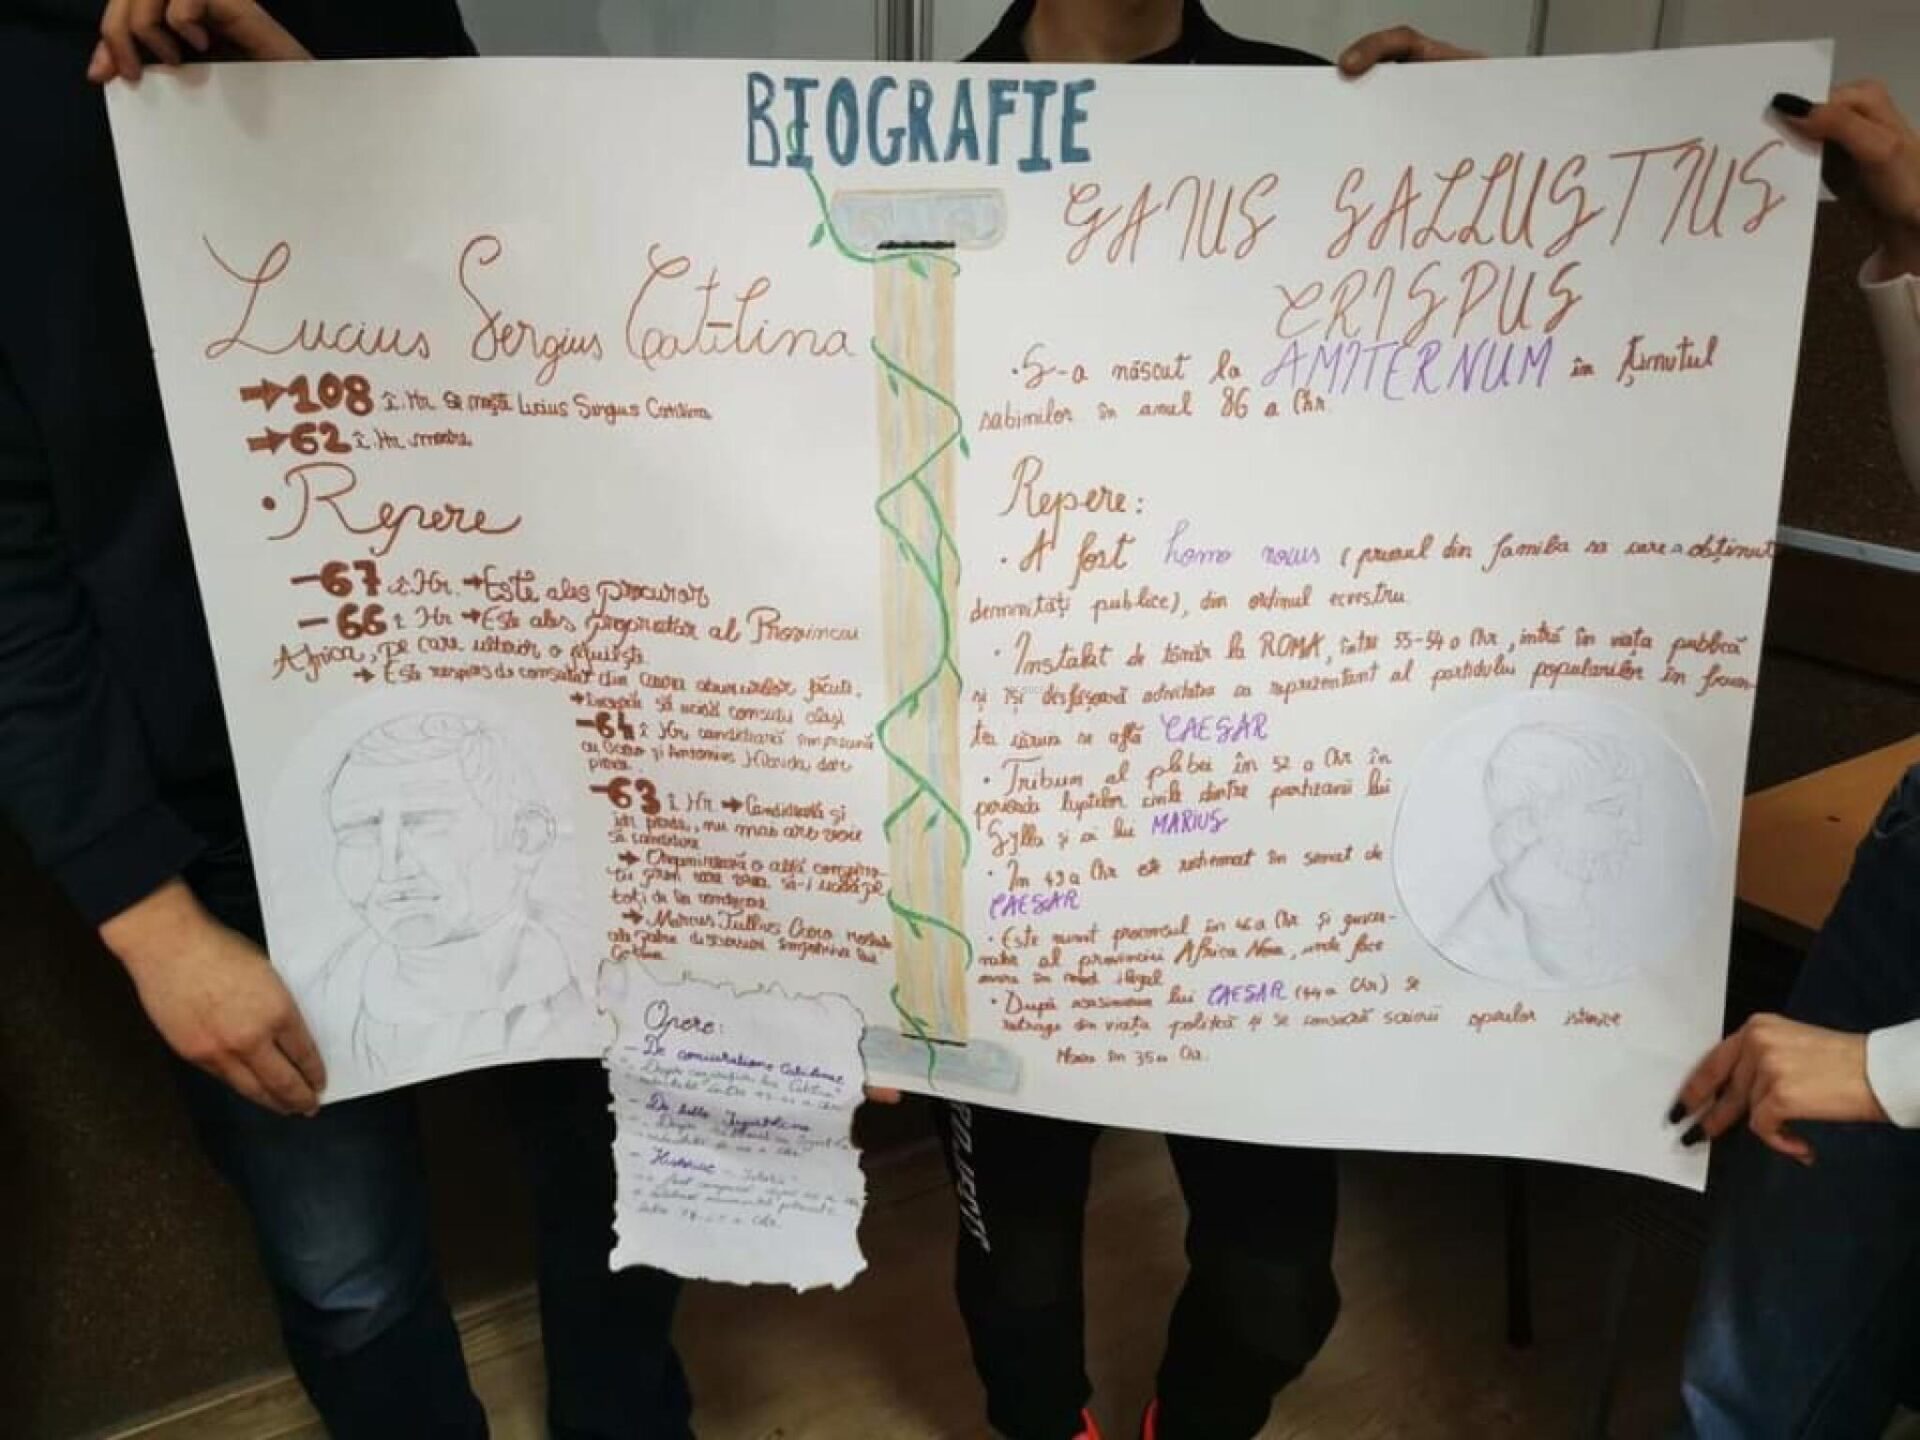 BIOGRAFIE
Lucius Sergius Catilina
→108 î.Hr. se naște Lucius Sergius Catilina
→62 î.Hr. moare
• Repere
-67 î.Hr. → Este ales procuror
-66 î Hr → Este ales proprietar al Provinciei
Africa, pe care ulterior o
→ Este respins de consulat din cauza abuzurilor făcute.
→ Încearcă să ucidă consulii aleși
-64 î Hr candidează împreună
cu Cicero și Antonius Hibrida, dar
pierde
-63 î Hr → Candidează și
iar pierde, nu mai are voie
să candideze
→ Organizează o altă conspira-
ție prin care voia să-i ucidă pe
toți de la conducere
→ Marcus Tullius Cicero rostește
ale patru discursuri împotriva lui
Catilina
Opere:
- De coniuratione Catilinae
- De bello Iugurthino
- Historiae
GAIUS SALLUSTIUS
CRISPUS
• S-a născut la AMITERNUM în ținutul
sabinilor în anul 86 a Chr.
Repere:
• A fost homo novus (primul din familia sa care a obținut
demnități publice), din ordinul ecvestru.
• Instalat de tânăr la ROMA, între 55-54 a Chr, intră în viața publică
și își desfășoară activitatea ca reprezentant al partidului popularilor în frun-
tea căruia se află CAESAR
• Tribun al plebei în 52 a Chr în
perioada luptelor civile dintre partizanii lui
Sylla și ai lui MARIUS
• În 49 a Chr este rechemat în senat de
CAESAR
• Este numit proconsul în 46 a Chr și guver-
nator al provinciei Africa Nova, unde face
avere în mod ilegal
• După asasinarea lui CAESAR (44 a Chr) se
retrage din viața politică și se consacră scrierii operelor istorice
Moare în 35 a Chr.